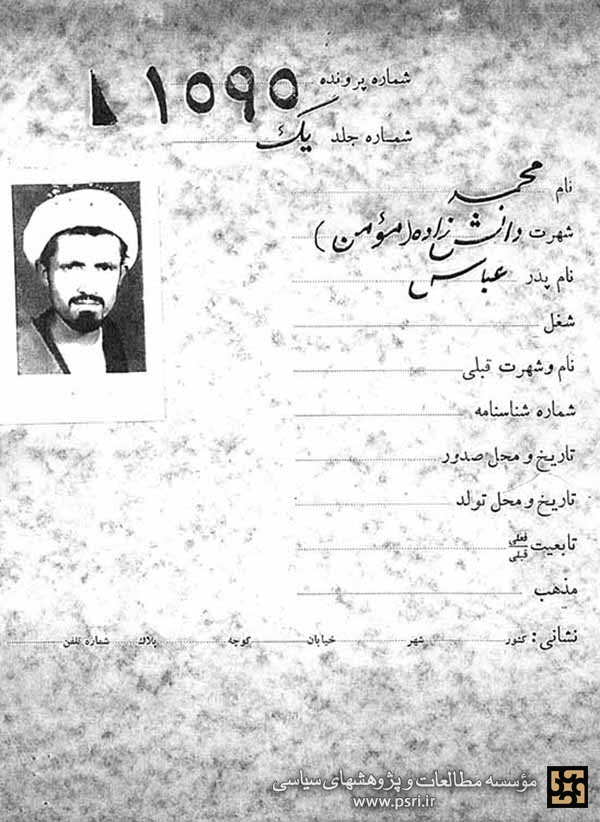 شماره پرونده ۱۵۹۵
شماره جلد یک
نام محمد
شهرت دانش زاده (مؤمن)
نام پدر عباس
شغل
نام و شهرت قبلی
شماره شناسنامه
تاریخ و محل صدور
تاریخ و محل تولد
تابعیت فعلی قبلی
مذهب
نشانی: کشور شهر خیابان کوچه پلاک شماره تلفن
مؤسسه مطالعات و پژوهشهای سیاسی
www.psri.ir